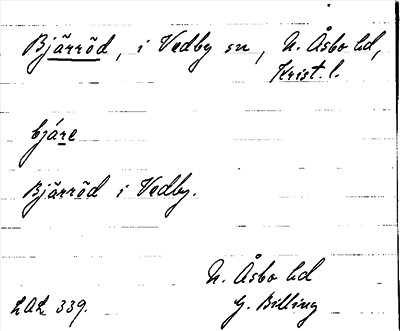 Bjärröd, i Vedby sn, N. Åsbo hd,
Krist. l.
bjáre
Bjärröd i Vedby.
N. Åsbo hd
LAL 339.
G. Billing